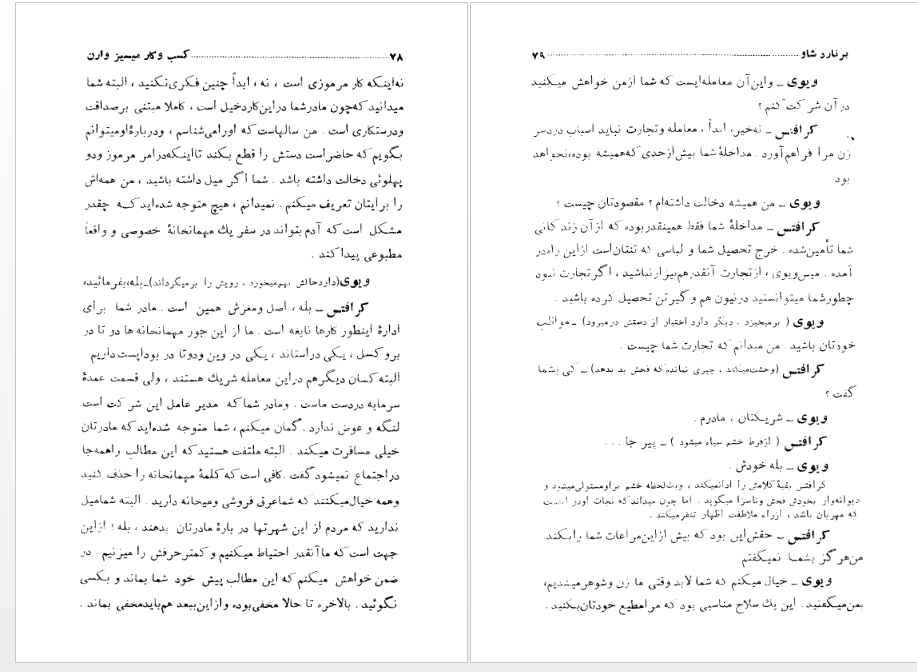 ۷۸ کسب و کار میسیز وارن
نه‌اینکه کار مرموزی است ، نه ، ابداً چنین فکری نکنید ، البته شما
میدانید که‌چون مادرشما دراین‌کاردخیل است ، کاملا مبتنی برصداقت
ودرستکاری است . من سالهاست که اورامی‌شناسم ، ودربارهٔ‌اومیتوانم
بگویم که حاضراست دستش را قطع بکند تااینکه‌درامر مرموز ودو
پهلوئی دخالت داشته باشد . شما اگر میل داشته باشید ، من همه‌اش
را برایتان تعریف میکنم . نمیدانم ، هیچ متوجه شده‌اید که چقدر
مشکل است که آدم بتواند در سفر یك مهمانخانهٔ خصوصی و واقعاً
مطبوعی پیدا کند .
ویوی (داردحالش بهم‌میخورد ، رویش را برمیگرداند)ــ بله،بفرمائید،
کرافتس ــ بله ، اصل ومغزش همین است . مادر شما برای
ادارهٔ اینطور کارها نابغه است . ما از این جور مهمانخانه‌ها دو تا در
بروکسل ، یکی دراستاند ، یکی در وین ودوتا در بوداپست‌داریم
البته‌کسان دیگرهم دراین معامله شریك هستند ، ولی قسمت عمدهٔ
سرمایه دردست ماست . ومادر شما که مدیر عامل این شرکت است
لنگه و عوض ندارد . گمان میکنم ، شما متوجه شده‌اید که مادرتان
خیلی مسافرت میکند . البته ملتفت هستید که این مطالب راهمه‌جا
دراجتماع نمیشودگفت . کافی است که کلمهٔ مهمانخانه را حذف کنید
وهمه خیال‌میکنند که شماعرق فروشی ومیخانه دارید . البته شمامیل
ندارید که مردم از این شهرتها در بارهٔ مادرتان بدهند ، بله ؛ ازاین
جهت است که ماآنقدر احتیاط میکنیم و کمترحرفش را میزنیم . در
ضمن خواهش میکنم که این مطالب پیش خود شما بماند و بکسی
نگوئید . بالاخره تا حالا مخفی‌بوده وازاین‌ببعد هم‌بایدمخفی بماند .
برنارد شاو ۷۹
ویوی ــ واین‌آن معامله‌ایست که شما ازمن خواهش میکنید
در آن شرکت کنم ؟
کرافتس ــ نه‌خیر، ابداً ، معامله وتجارت نباید اسباب دردسر
زن مرا فراهم‌آورد . مداخلهٔ شما بیش‌ازحدی که‌همیشه بوده،نخواهد
بود
ویوی ــ من همیشه دخالت داشته‌ام ؟ مقصودتان چیست ؟
کرافتس ــ مداخلهٔ شما فقط همینقدربوده که ازآن زندگانی
شما تأمین‌شده . خرج تحصیل شما و لباسی که تنتان‌است ازاین راه‌در
آمده . میس‌ویوی ، ازتجارت آنقدرهم‌بیزارنباشید ، اگر تجارت نبود
چطورشما میتوانستید درنیون هم و گیرتن تحصیل کرده باشید .
ویوی ( برمیخیزد . دیگر دارد اختیار از دستش درمیرود) ــ مواظب
خودتان باشید . من میدانم که تجارت شما چیست .
کرافتس (وحشت‌میکند ، چیزی نمانده که فحش بد بدهد) ــ کی بشما
گفت ؟
ویوی ــ شریکتان ، مادرم .
کرافتس ( ازفرط خشم سیاه میشود ) ــ پیر جا ...
ویوی ــ بله خودش .
کرافتس بقیهٔ کلامش را ادانمیکند ، ویك‌لحظه خشم براومستولی‌میشود و
دیوانه‌وار بخودش فحش وناسزا میگوید . اما چون میداند که نجات اودر اینست
که مهربان باشد ، ازراه ملاطفت اظهار تنفرمیکند .
کرافتس ــ حقش‌این بود که بیش ازاین‌مراعات شما را بکند.
من‌هرگز بشما نمیگفتم
ویوی ــ خیال میکنم که شما لابد وقتی ما زن وشوهرمیشدیم،
بمن‌میگفتید . این یك سلاح مناسبی بود که مرامطیع خودتان‌بکنید .